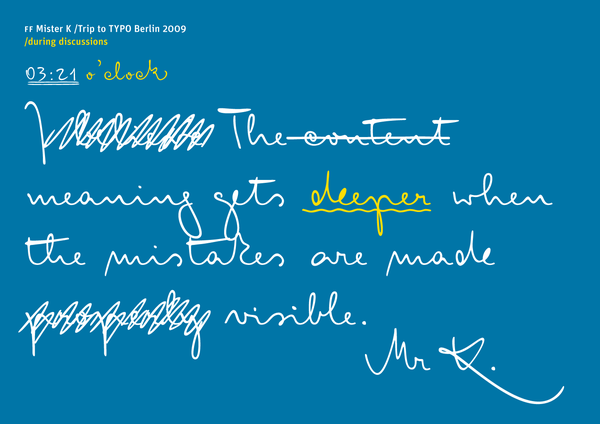 FF Mister K /Trip to TYPO Berlin 2009
/during discussions
03:21 o'clock
The content
meaning gets deeper when
the mistakes are made
visible.
Mr K.